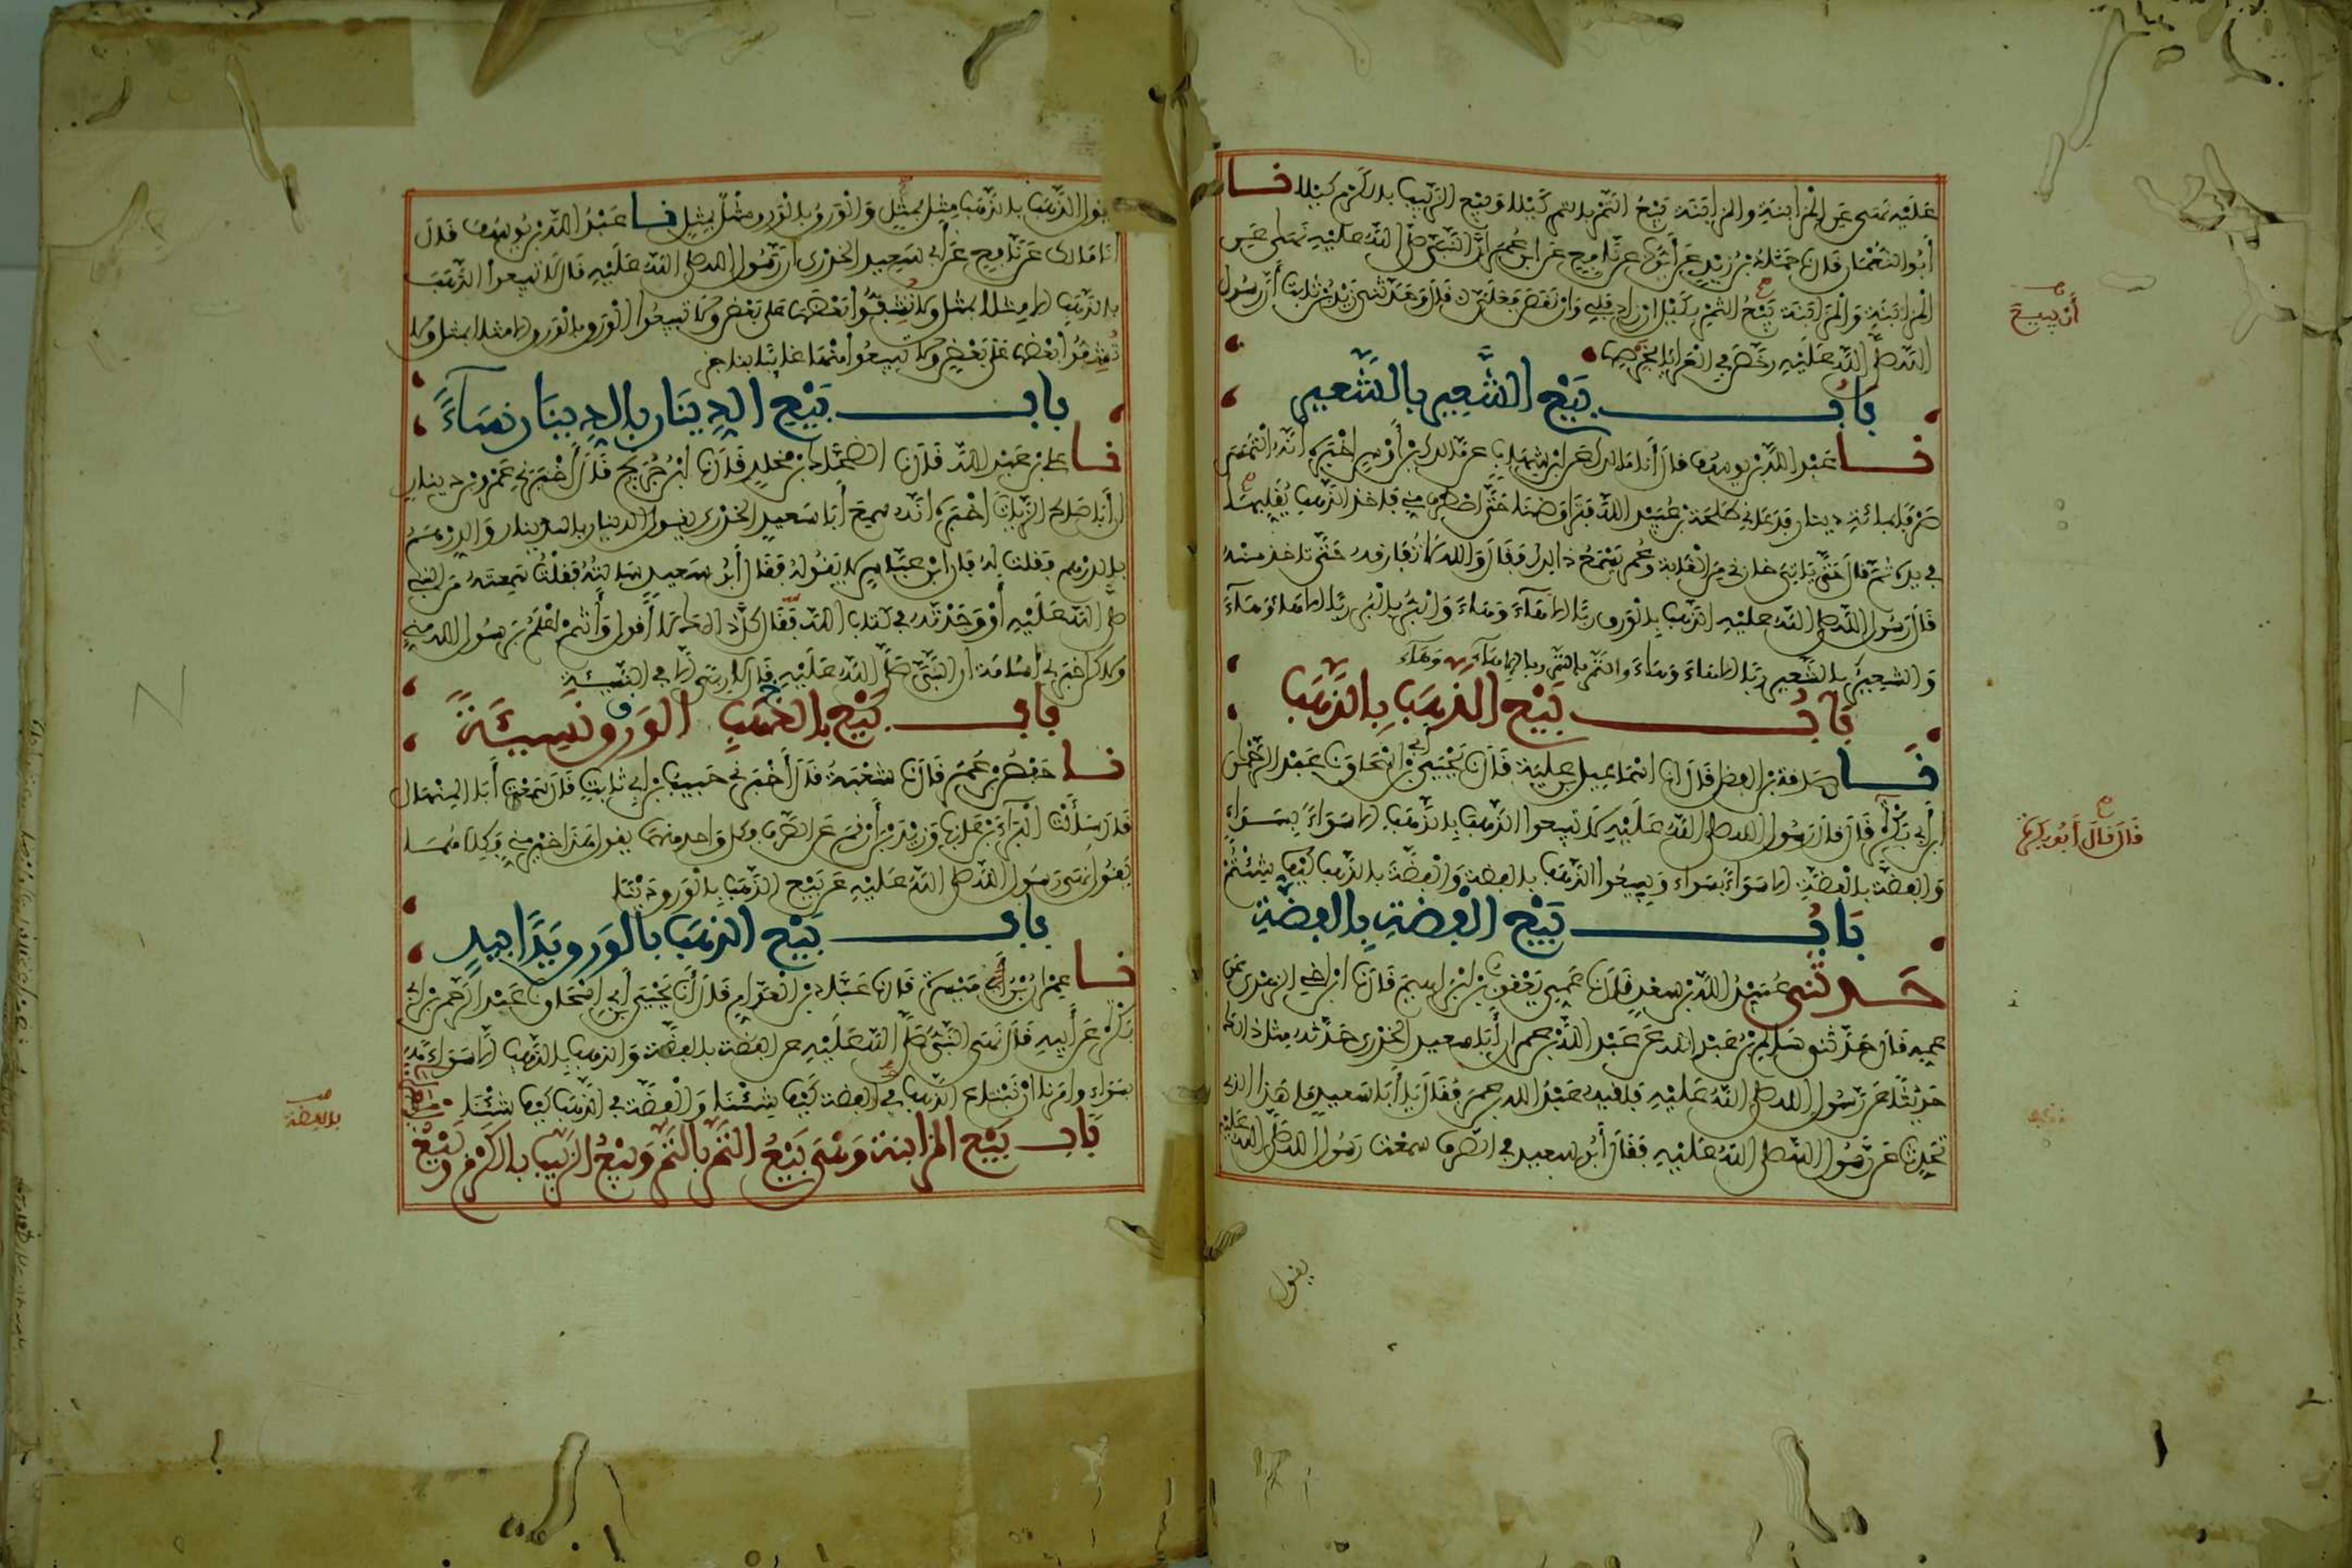 عَلَيْهِ نَهَى عَنِ الْمُزَابَنَةِ والمزابَنَة بَيْعُ الثَّمْرِ بالتمر كَيْلا وَبَيْعِ الزَّبِيبِ بالكَرْمِ كَيْلا نا
أَبُو النُّعْمَان قال نا حَمَّادُ بْنُ زَيْدٍ عَنْ أَيُّوبَ عن نَّافِعٍ عَنِ ابْنِ عُمَرَ أنَّ النَّبِيَّ صلى اللهُ عَلَيْهِ نَهَى عَنِ
الْمُزَابَنَةِ وَالْمُزَابَنَة بَيْعُ الثَّمْرِ بِكَيْلٍ ان زاد فَلِي وَان نَقَصَ فَعَلَيَّ قَالَ وَحَدَّثَنِي زَيْدُ بْنُ ثابت أَنَّ رسول
أن يبيع
الله صلى اللهُ عَلَيْهِ رخَّصَ فِي الْعَرَايَا بِخَرْصِهَا
بَابُ بَيْعِ الشَّعِيرِ بالشَّعِيرِ
نا عَبْدُ اللَّهِ بْنُ يوسف قال أَنا مَالِك عَنِ ابْنِ شِهَاب عن مَّالِكِ بْنِ أَوْس أخبره أَنَّهُ الْتَمَسَ
صَرْفًا بمائة دينار فَدَعَانِي طَلْحَة بْنُ عُبَيْدِ اللَّهِ فَتَرَاوَضْنَا حَتَّى اصْطرف مني فأخذ الذَّهب يُقَلِّبُهَا
في يده ثمَّ قال حَتَّى يَاتِيَ خازني مِنَ الْغَابَة وعُمر يَسْمَعُ ذَالِكَ فَقَالَ وَاللهِ لا تُفَارِقه حَتَّى تاخذ منْهُ
قال رَسُول اللَّهِ صلى اللهُ عليْهِ الذَّهَبُ بِالْوَرِقِ رِبًا إلا هَاءَ وَهَاءَ وَالْبُرُّ بِالْبُرِّ رِبًا إلا هَاءَ وَهَاءَ
وَالشعِيرُ بالشَّعِيرِ رِبًا إلا هَاءَ وَهَاءَ وَالتَّمْرُ بالتَّمْرِ ربا إلا هَاءَ وَهَاءَ
بَابُ بَيْعِ الذَّهَبِ بِالذَّهَبِ
نا صدقةُ بْنُ الفضل قَالَ أنا اسْمَاعِيل بن عُلَيَّة قال نا يَحْيَى بْنُ أَبِي إسْحَاقَ نا عَبْدُ الرَّحْمَنِ
ابْنُ أَبِي بَكْرَةَ قَالَ قال رَسُول الله صلى اللهُ عَلَيْهِ لا تبيعوا الذَّهَبَ بِالذَّهَبِ إلا سَوَاءً بِسَوَاءٍ
قَالَ قَالَ أَبُو بَكْرَةَ
وَالْفِضَّة بِالْفِضَّةِ إلا سَوَاءً بِسَوَاءٍ وَبِيعُوا الذَّهَبَ بالفِضَّة وَالْفِضَّةَ بِالذَّهَبِ كَيْفَ شِئْتُمْ
بَابُ بَيْعِ الْفِضَّةِ بِالفِضَّةِ
حَدثنى عُبَيْدُ اللَّهِ بْنُ سعْدٍ قال نا عَمِّي يَعْقُوب بْنُ إبْرَاهِيمَ قَال نا ابْنُ أَخِي الزُّهْرِيّ عَنْ
عَمِّهِ قَالَ حَدَّثَنِي سَالِمُ بْنُ عَبْدِ اللَّهِ عَنْ عَبْدِ اللَّهِ بْنِ عُمَر أن أَبَا سَعِيدٍ الْخُدْرِي حَدَّثَهُ مِثْلَ ذَالِكَ
حَدِيثًا عَن رَّسُولِ الله صلى اللهُ عَلَيْهِ فلقيه عَبْدُ الله بن عُمَرَ فَقَالَ يَا أَبَا سَعِيد مَا هَذَا الذي
تُحَدِّث عَن رَّسُولِ اللَّهِ صلى اللهُ عَلَيْهِ فَقَالَ أَبُو سَعِيدٍ فِي الصَّرْفِ سَمِعْت رَسُولَ الله صلى اللهُ عَلَيْهِ
يقول
يقول الذَّهَبُ بِالذَّهَبِ مِثْل بِمِثْلٍ وَالْوَرِقُ بِالْوَرِقِ مِثْل بِمِثْلٍ نا عَبْدُ اللَّهِ بْنُ يُوسُفَ قَالَ
أَنَا مَالِك عَن نَّافِعٍ عَنْ أَبِي سَعِيدٍ الْخُدْرِي أَن رَّسُولَ الله صلى اللهُ عَلَيْهِ قَالَ لا تَبِيعُوا الذَّهَبَ
بِالذَّهَبِ إلا مِثْلا بِمِثْلٍ وَلا تُشِفُّوا بَعْضَهَا عَلَى بَعْضٍ وَلا تَبِيعُوا الْوَرِقَ بِالْوَرِقِ إلا مِثْلا بِمِثْلٍ وَلا
تُشِفُّوا بَعْضَهَا عَلَى بَعْضٍ وَلا تَبِيعُوا مِنْهَا غَائِبًا بِنَاجِزٍ
بابُ بَيْعِ الدِّينَارِ بالدِّينَارِ نَسَاءً
نا علي بن عَبْدِ اللَّهِ قَال نا الضَّحَّاك بْنُ مَخْلَدٍ قَال نا ابْنُ جُرَيْجٍ قَالَ أَخْبَرَنِي عَمْرُو بن دينار
أن أَبَا صَالِح الزَّيَّات أَخْبَرَه أَنَّهُ سَمِعَ أَبَا سَعِيدٍ الْخُدْرِي يَقُول الدِّينَار بِالدِّينَارِ وَالدِّرْهَمُ
بِالدِّرْهَم فقلت لَهُ فإن ابْنَ عَبَّاسٍ لا يَقُولُهُ فَقَالَ أَبُو سَعِيدٍ سَأَلْتُهُ فَقُلْتُ سَمِعْتَهُ مِن النَّبِي
صلى اللهُ عَلَيْهِ أَوْ وَجَدْتَهُ فِي كِتَابِ اللَّهِ فَقَالَ كُلُّ ذَالِكَ لا أَقُول وَأَنْتُمْ أَعْلَمُ بِرَسُول الله مِنِّي
وَلَكِنْ أخْبَرَنِي أُسَامَةُ أن النَّبِيَّ صلى اللهُ عَلَيْهِ قَالَ لا رِبًى إِلا فِي النَّسِيئَةِ
بَابُ بَيْعِ الوَرِقِ بِالذَّهَبِ نَسِيئَةً
نا حَفْصُ بْنُ عُمَرَ قَال نا شُعْبَةُ قَالَ أَخْبَرَنِي حَبِيبُ بْنُ أَبِي ثَابِتٍ قَالَ سَمِعْت أَبَا الْمِنْهَال
قَالَ سَأَلْتُ الْبَرَاءَ بْنَ عَازِبٍ وَزَيْدَ بْنَ أَرْقَمَ عَنِ الصَّرْفِ فكل وَاحِد مِنْهُمَا يقول هَذَا خَيْرٌ مِنِّي فَكِلاهُمَا
يَقُول نَهَى رَسُول اللَّهِ صلى اللهُ عَلَيْهِ عَنْ بَيْعِ الذَّهَبِ بِالْوَرِقِ دَيْنًا
بابُ بَيْعِ الذهَبِ بالوَرِقِ يَدًا بِيَدٍ
نا عِمْرَانُ بْنُ مَيْسَرَةَ قَال نا عَبَّادُ بْنُ الْعَوَّامِ قَالَ أَنَا يَحْيَى بْنُ أَبِي إسْحَاقَ نا عَبْدُ الرَّحْمَن بْنُ أَبِي
بَكْرَةَ عَنْ أَبِيهِ قَالَ نَهَى النَّبِيُّ صلى اللهُ عَلَيْهِ عَنِ الفِضَّة بِالْفِضَّة وَالذَّهَبِ بِالذَّهَبِ إلا سَوَاءً
بِسَوَاءٍ وَأَمَرَنَا أَنْ نَبْتَاع الذَّهَبَ فِي الفِضَّة كَيْفَ شِئْنَا وَالْفِضَّةَ فِي الذَّهَبِ كَيْفَ شِئْنَا
بالفضة
بَابُ بَيْعِ المزابنة وَهْيَ بَيْعُ التَّمْرِ بالثَّمَرِ وَبَيْعُ الزَّبِيبِ بالكَرْمِ وَبَيْعُ